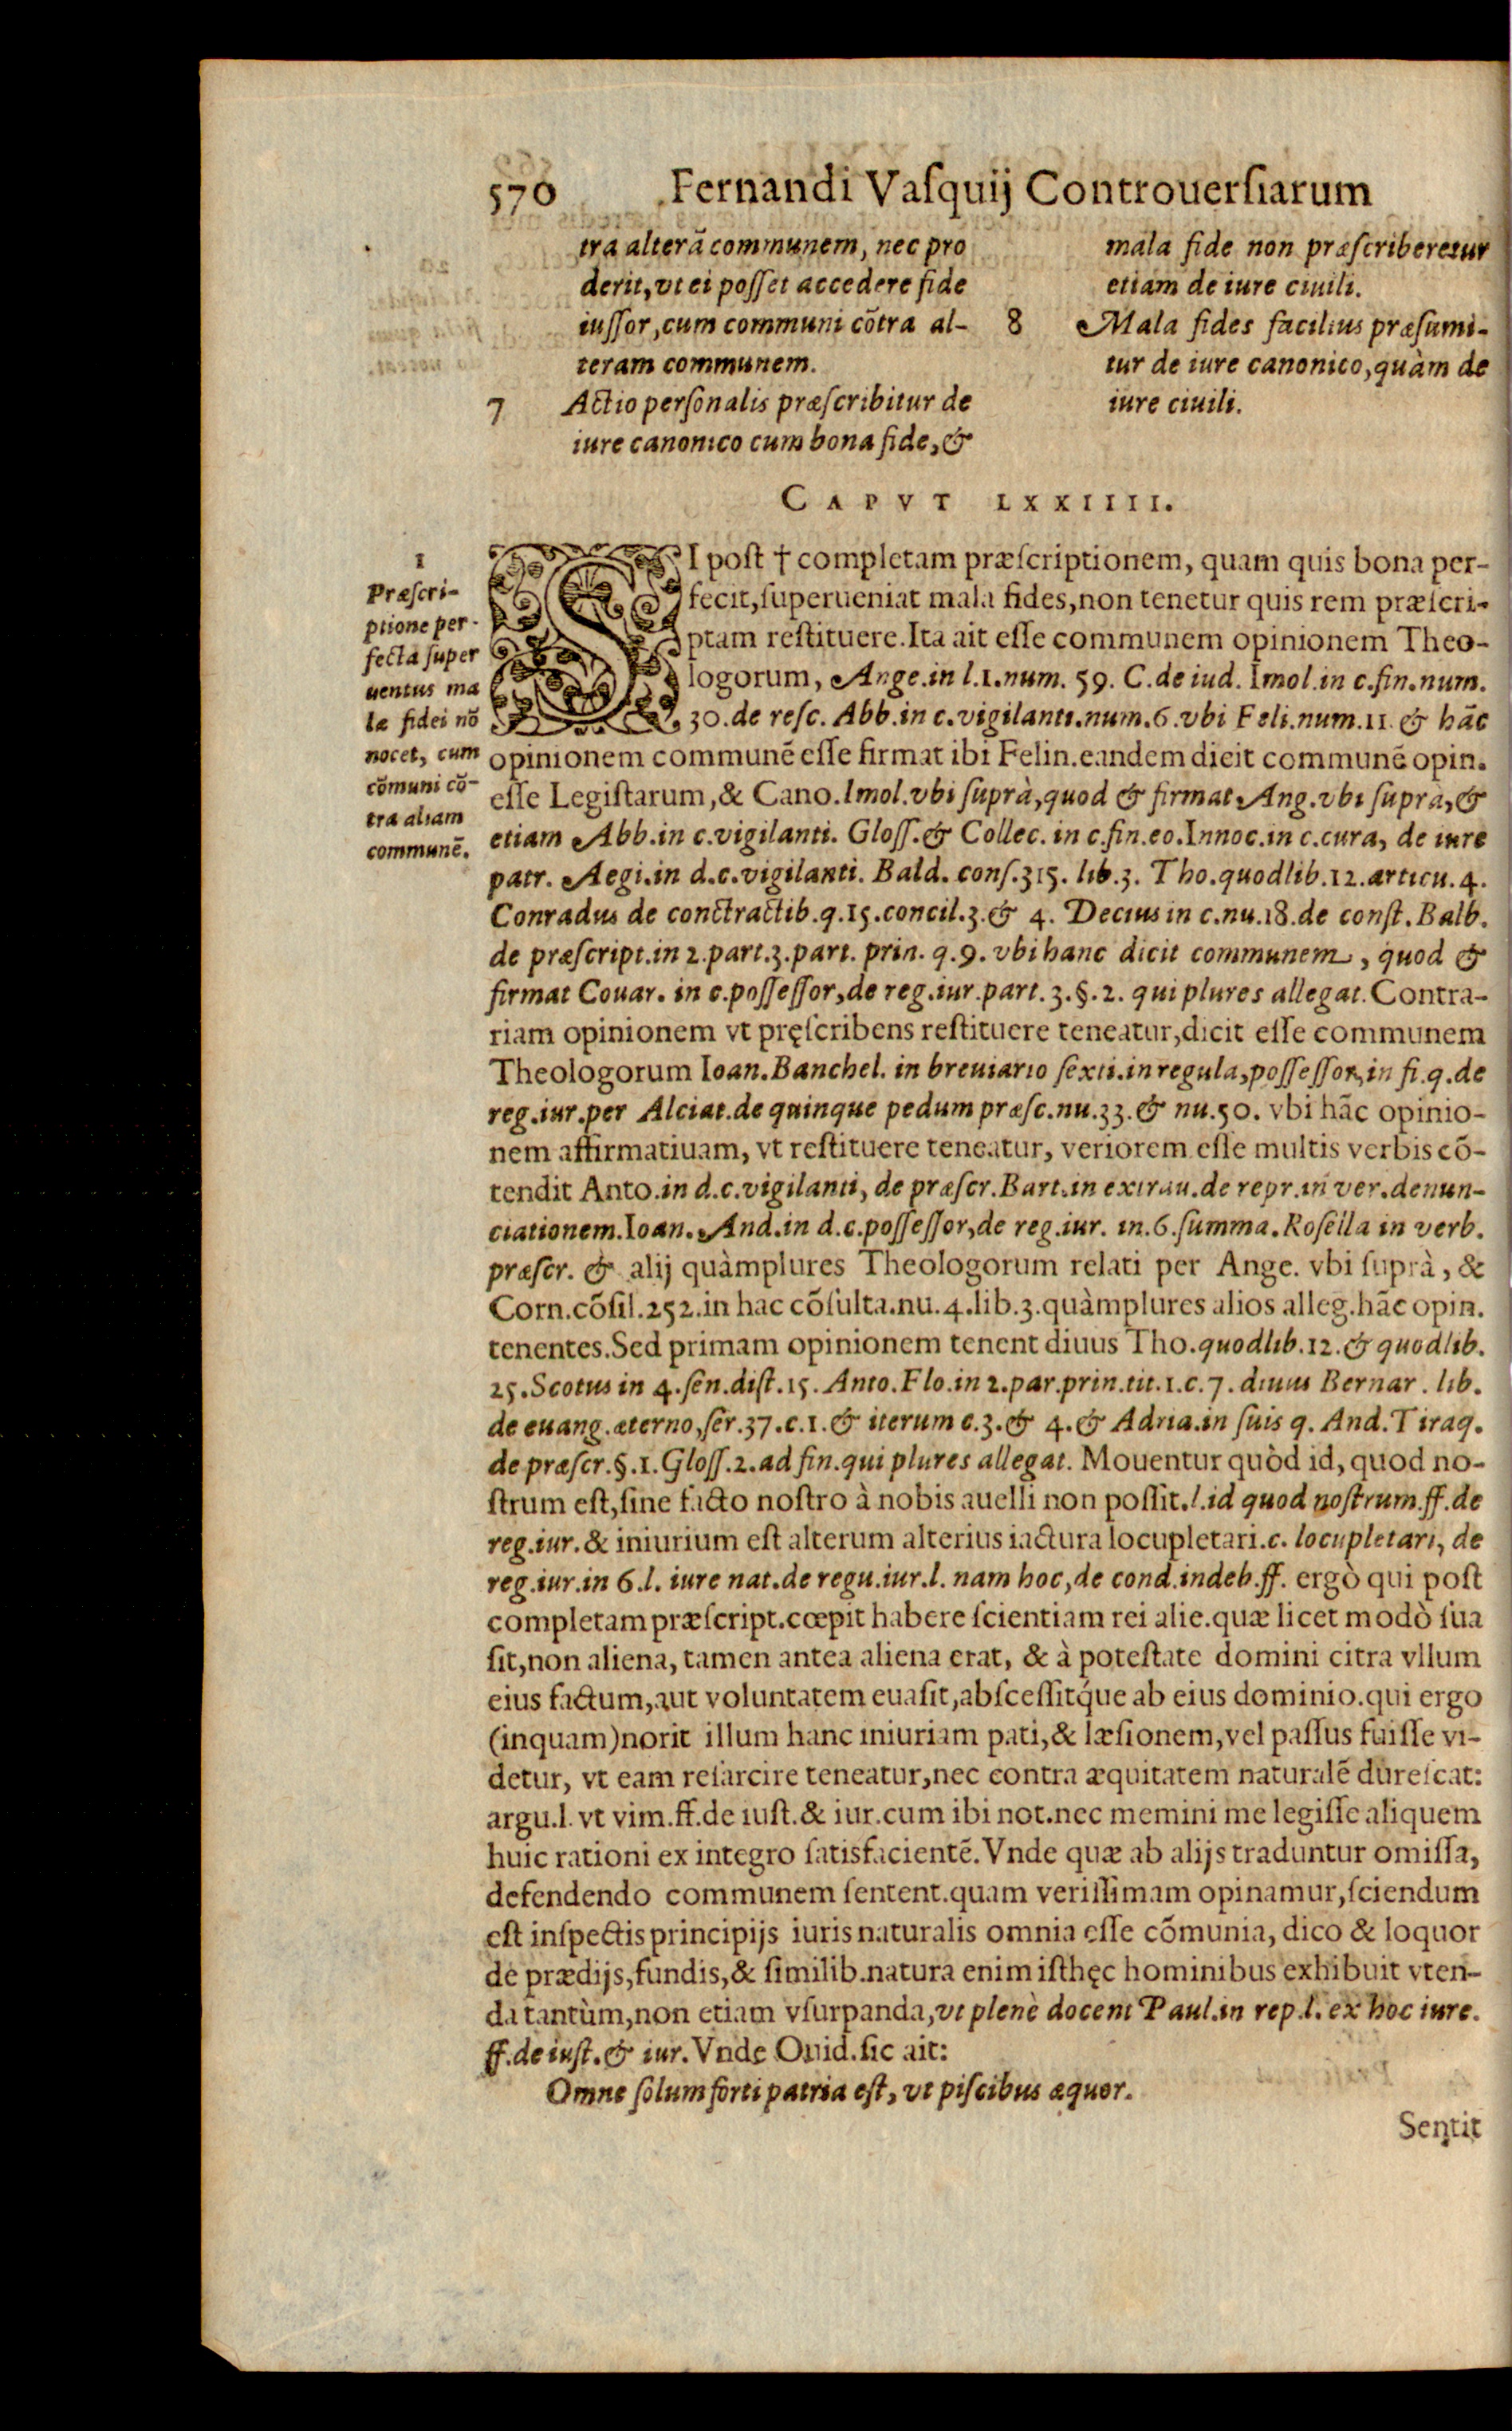 570 Fernandi Vaſquij Controuerſiarum
tra alterã communem, nec pro
derit, vt ei poſſet accedere fide
iuſſor, cum communi cõtra al-
teram communem.
7 Actio perſonalis præſcribitur de
iure canonico cum bona fide, &
mala fide non præſcriberetur
etiam de iure ciuili.
8 Mala fides facilius præſumi-
tur de iure canonico, quàm de
iure ciuili.
CAPVT LXXIIII.
1
Præſcri-
ptione per-
fecta ſuper
uentus ma
læ fidei nõ
nocet, cum
cõmuni cõ-
tra aliam
communẽ.
SI poſt † completam præſcriptionem, quam quis bona per-
fecit, ſuperueniat mala fides, non tenetur quis rem præſcri-
ptam reſtituere. Ita ait eſſe communem opinionem Theo-
logorum, Ange. in l. 1. num. 59. C. de iud. Imol. in c. fin. num.
30. de reſc. Abb. in c. vigilanti. num. 6. vbi Feli. num. 11. & hãc
opinionem communẽ eſſe firmat ibi Felin. eandem dicit communẽ opin.
eſſe Legiſtarum, & Cano. Imol. vbi ſuprà, quod & firmat Ang. vbi ſuprà, &
etiam Abb. in c. vigilanti. Gloſſ. & Collec. in c. fin. eo. Innoc. in c. cura, de iure
patr. Aegi. in d. c. vigilanti. Bald. conſ. 315. lib. 3. Tho. quodlib. 12. articu. 4.
Conradus de conctractib. q. 15. concil. 3. & 4. Decius in c. nu. 18. de conſt. Balb.
de præſcript. in 2. part. 3. part. prin. q. 9. vbi hanc dicit communem, quod &
firmat Couar. in c. poſſeſſor, de reg. iur. part. 3. §. 2. qui plures allegat. Contra-
riam opinionem vt pręſcribens reſtituere teneatur, dicit eſſe communem
Theologorum Ioan. Banchel. in breuiario ſexti. in regula, poſſeſſor, in fi. q. de
reg. iur. per Alciat. de quinque pedum præſc. nu. 33. & nu. 50. vbi hãc opinio-
nem affirmatiuam, vt reſtituere teneatur, veriorem eſſe multis verbis cõ-
tendit Anto. in d. c. vigilanti, de præſcr. Bart. in extrau. de repr. in ver. denun-
ciationem. Ioan. And. in d. c. poſſeſſor, de reg. iur. in. 6. ſumma. Roſella in verb.
præſcr. & alij quàmplures Theologorum relati per Ange. vbi ſuprà, &
Corn. cõſil. 252. in hac cõſulta. nu. 4. lib. 3. quàmplures alios alleg. hãc opin.
tenentes. Sed primam opinionem tenent diuus Tho. quodlib. 12. & quodlib.
25. Scotus in 4. ſen. diſt. 15. Anto. Flo. in 2. par. prin. tit. 1. c. 7. diuus Bernar. lib.
de euang. æterno, ſer. 37. c. 1. & iterum c. 3. & 4. & Adria. in ſuis q. And. Tiraq.
de præſcr. §. 1. Gloſſ. 2. ad fin. qui plures allegat. Mouentur quòd id, quod no-
ſtrum eſt, ſine facto noſtro à nobis auelli non poſſit. l. id quod noſtrum. ff. de
reg. iur. & iniurium eſt alterum alterius iactura locupletari. c. locupletari, de
reg. iur. in 6. l. iure nat. de regu. iur. l. nam hoc, de cond. indeb. ff. ergò qui poſt
completam præſcript. cœpit habere ſcientiam rei alie. quæ licet modò ſua
ſit, non aliena, tamen antea aliena erat, & à poteſtate domini citra vllum
eius factum, aut voluntatem euaſit, abſceſſitq́ue ab eius dominio. qui ergo
(inquam) norit illum hanc iniuriam pati, & læſionem, vel paſſus fuiſſe vi-
detur, vt eam reſarcire teneatur, nec contra æquitatem naturalẽ dureſcat:
argu. l. vt vim. ff. de iuſt. & iur. cum ibi not. nec memini me legiſſe aliquem
huic rationi ex integro ſatisfacientẽ. Vnde quæ ab alijs traduntur omiſſa,
defendendo communem ſentent. quam veriſſimam opinamur, ſciendum
eſt inſpectis principijs iuris naturalis omnia eſſe cõmunia, dico & loquor
de prædijs, fundis, & ſimilib. natura enim iſthęc hominibus exhibuit vten-
da tantùm, non etiam vſurpanda, vt plenè docent Paul. in rep. l. ex hoc iure.
ff. de iuſt. & iur. Vnde Ouid. ſic ait:
Omne ſolum forti patria eſt, vt piſcibus æquor.
Sentit